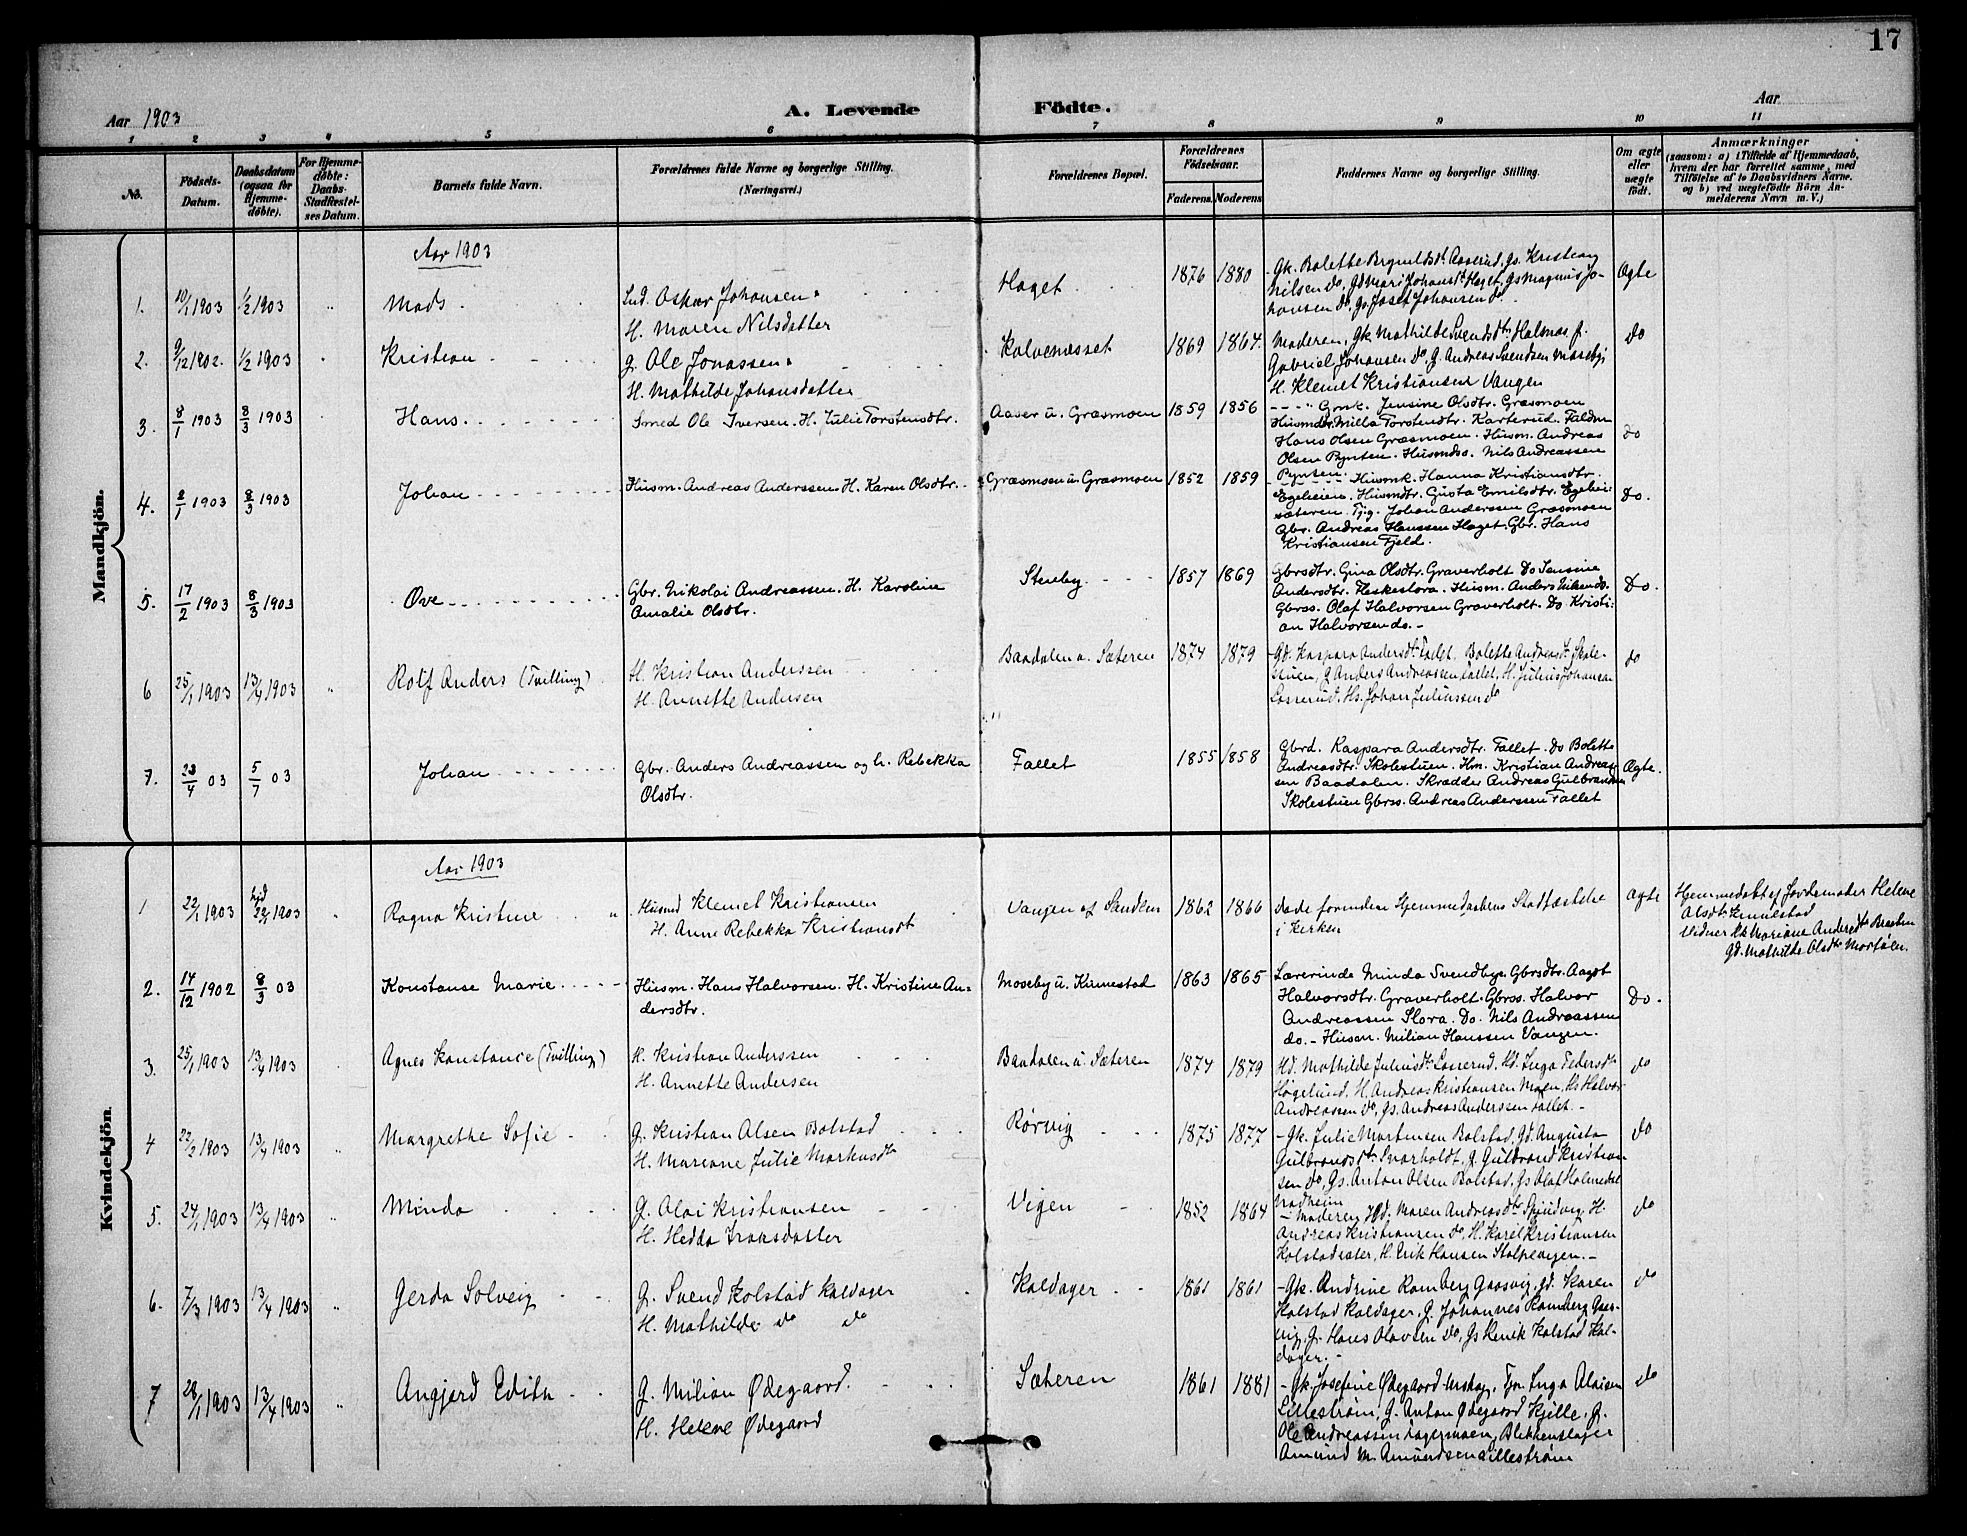 17
Aar 1903
A. Levende Födte.
Aar
1 2 3 4 5 6 7 8 9 10 11
No.
Födsels-Datum.
Daabsdatum (ogsaa for Hjemme-döbte).
For Hjemme-döbte: Daabs-Stadfæstel-ses Datum.
Barnets fulde Navn.
Forældrenes fulde Navne og borgerlige Stilling. (Næringsvei.)
Forældrenes Bopæl.
Forældrenes Födselsaar.
Faderens. Moderens
Faddernes Navne og borgerlige Stilling.
Om ægte eller uægte födt.
Anmærkninger
(saasom: a) i Tilfælde af Hjemmedaab,
hvem der har forrettet samme, med
Tilföielse af to Daabsvidners Navne.
og b) ved uægtefödte Börn An-
melderens Navn m. V.)
Mandkjön.
Aar 1903
1. 10/1 1903 1/2 1903 " Mads
Ind. Oskar Johansen
H. Maren Nilsdatter
Haget 1876 1880
Gk. Bolette Brynildsdt. Aaserud, gs. Kristian
Nilsen do, Gd Mari Johansdt. Haget, Gs Magnus Jo-
hansen do, gs. Josef Johansen do
Ægte
2. 9/12 1902. 1/2 1903 Kristian
g. Ole Jonassen
H. Mathilde Johansdatter
Kalvenæsset 1869 1864.
Moderen, Gk. Mathilde Svendsdt. Halsnæs, f.
Gabriel Johansen do, G. Andreas Svendsen Moseby,
H. Klemet Kristiansen Vangen
do
3. 8/1 1903 8/3 1903 Hans
Smed Ole Iversen. H. Julie Torstensdtr.
Aaser u. Græsmoen 1859 1856
Grnk. Jensine Olsdtr. Græsmoen
Husmdtr. Milla Torstendtr. Karterud. Faldm
Hans Olsen Græsmoen. Husm. Andreas
Olsen Pynten. Husmdss. Nils Andreassen
Pynten.
do
4. 8/1 1903 8/3 1903 Johan
Husm. Andreas Anderssen. H. Karen Olsdtr.
Græsmoen u. Græsmoen 1852 1859
Husmk. Hanna Kristiansdtr.
Egelieien. Husmdtr. Gusta Emilsdtr. Egelei-
sæteren. Tjg. Johan Anderssen Græsmoen
Gbr. Andreas Hanssen Haget. Gbr. Hans
Kristiansen Fjeld.
Do.
5. 17/2 1903 8/3 1903 Ove
Gbr. Nikolai Andreassen. H. Karoline
Amalie Olsdtr.
Stenby 1857 1869
Gbrsdtr. Gina Olsdtr. Graverholt Do Jensine
Andersdtr. Fleskestora. Husm. Anders Eriksen do.
Gbrss. Olaf Halvorsen Graverholt. Do. Kristi-
an Halvorsen do.
Do.
6 25/1 1903 13/4 1903 " Rolf Anders (Tvilling)
H. Kristian Anderssen
H. Annette Andersen
Baadalen u. Sæteren 1874 1879
Gd. Kaspara Andersdt. Fallet, Bolette Andreasdt. Skole-
stuen, G Anders Andreassen Fallet, H. Julius Johansen
Losserud, Hs. Johan Juliussen do
do
7. 23/4 03 5/7 03 Johan
Gbr. Anders Andreassen og h. Rebekka
Olsdtr.
Fallet 1855 1858
Gbrd. Kaspara Andersdtr. Fallet. Do Bolette
Andreasdtr. Skolestuen. Hm. Kristian Andreas-
sen Baadalen. Skrædder Andreas Gulbrandsen
Skolestuen Gbrss. Andreas Anderssen Fallet
Ægte.
Kvindekjön.
Aar 1903
1 22/1 1903 hjd 22/1 1903 " Ragna Kristine
Husmd Klemet Kristiansen
H. Anne Rebekka Kristiansdt
Vangen af Sandem 1862 1866
Døde forinden Hjemmedaabens Stadfæstelse
i Kirken
Ægte
Hjemmedøbt af Jordemoder Helene
Olsdt. Kinnestad
Vidner Gk Mariane Andersdt. Braaten
Gd. Mathilde Olsdt. Morfølen.
2. 14/12 1902 8/3 03 Konstanse Marie
Husm. Hans Halvorsen. H. Kristine An-
dersdtr.
Moseby u. Kinnestad 1863 1865
Lærerinde Minda Svendby. Gbrsdtr. Aagot
Halvorsdtr. Graverholt. Gbrss. Halvor
Andreassen Slora. Do. Nils Andreassen
do. Husm. Milian Hanssen Vangen.
Do.
3. 25/1 1903 13/4 1903 Agnes Konstance (Tvilling)
H. Kristian Anderssen
H. Annette Andersen
Baadalen u. Sæteren 1874 1879
Hd. Mathilde Juliusdt. Losserud, Hd. Inga Pedersdt.
Høgelund, H. Andreas Kristiansen Moen, Hs Halvor
Andreassen do, Gs. Andreas Anderssen Fallet.
do
4 22/2 1903 13/4 1903 " Margrethe Sofie
G. Kristian Olsen Bolstad
H. Mariane Julie Markusdt
Rørvig 1875 1877
Gk. Julie Martinsen Bolstad, Gd. Augusta
Gulbrandsdt. Svarholdt, G Gulbrand Kristian-
sen do, Gs. Anton Olsen Bolstad, Gs Olaf Holmedal
Nadheim
do
5. 24/1 1903 13/4 1903 " Minda
G. Olai Kristiansen
H. Hedda Iversdatter
Vigen 1852 1864
Moderen, Hd. Maren Andreasdt. Spindvig, H.
Andreas Kristiansen do, H. Karel Kristiansen
Kolstadsæter, H. Erik Hansen Stolpevigen.
do
6. 7/3 1903 13/4 1903 " Gerda Solveig
G. Svend Kolstad Kaldager
H. Mathilde do do
Kaldager 1861 1861
Gk. Andrine Ramberg Gaasvig, gd. Karen
Kolstad Kaldager, G. Johannes Ramberg Gaas-
vig, G. Hans Olavsen do, Gs Henrik Kolstad Kal-
dager.
do
7 28/1 1903 13/4 1903 " Angjerd Edith
G. Milian Ødegaard.
H. Helene Ødegaard
Sæteren 1861 1881
Gk. Josefine Ødegaard Urskog, Tjn. Inga Olaisen
Lillestrøm, G. Anton Ødegaard Kjelle, G.
Ole Andreassen Lagermoen, Blikkenslager
Amund M. Amundsen Lillestrøm
do